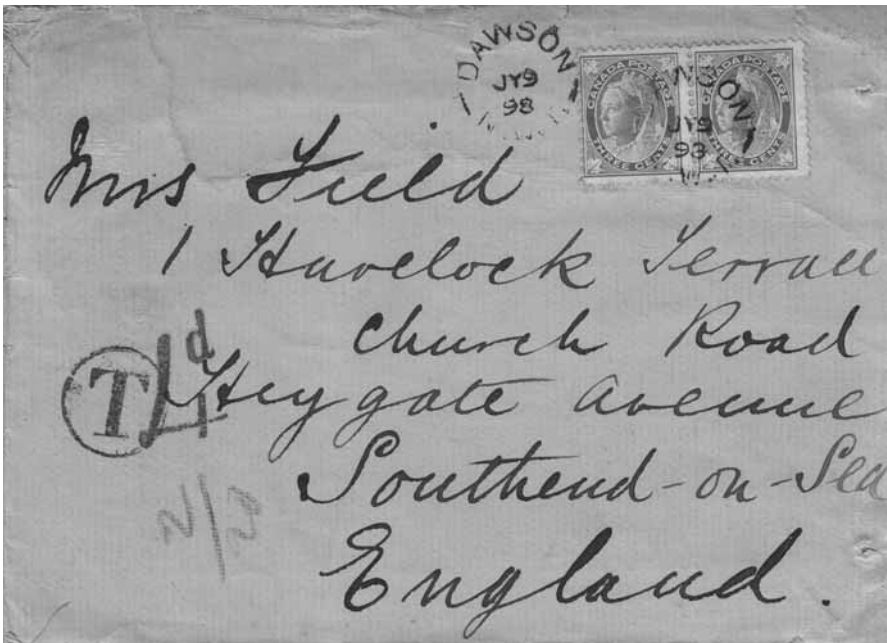 DAWSON
JY 9
98
CANADA POSTAGE
THREE CENTS
CANADA POSTAGE
THREE CENTS
JY 9
98
Mrs Field
1 Havelock Terrace
Church Road
Heygate Avenue
Southend-on-Sea
England.
T
4d